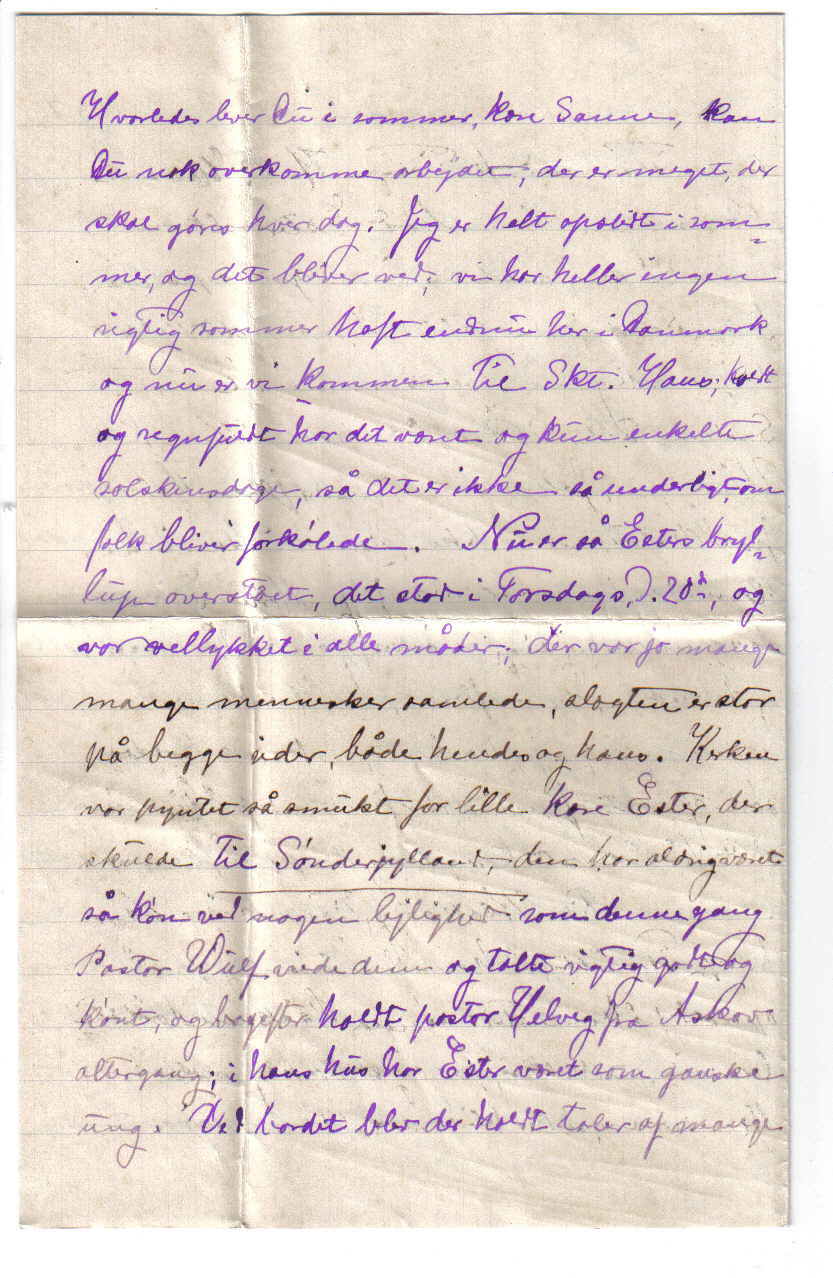 Hvorledes lever Du i sommer, kære Sanne, kan
Du nok overkomme arbejdet; der er meget, der
skal gøres hver dag. Jeg er helt opslidt i som=
mer, og det bliver ved; vi har heller ingen
rigtig sommer haft endnu her i Danmark,
og nu er vi kommen til Skt. Hans; koldt
og regnfuldt har det været og kun enkelte
solskinsdage, så det er ikke så underligt, om
folk bliver forkølede. Nu er så Esters bryl=
lup overstået, det stod i Torsdags, D. 20de, og
var vellykket i alle måder; der var jo mange
mange mennesker samlede, slægten er stor
på begge sider, både hendes og hans. Kirken
var pyntet så smukt for lille kære Ester, der
skulde til Sønderjylland, den har aldrig været
så køn ved nogen lejlighed som denne gang
Pastor Wulf viede dem og talte rigtig godt og
kønt, og bagefter holdt pastor Helveg fra Askov
altergang; i hans hus har Ester været som ganske
ung. Ved bordet blev der holdt taler af mange